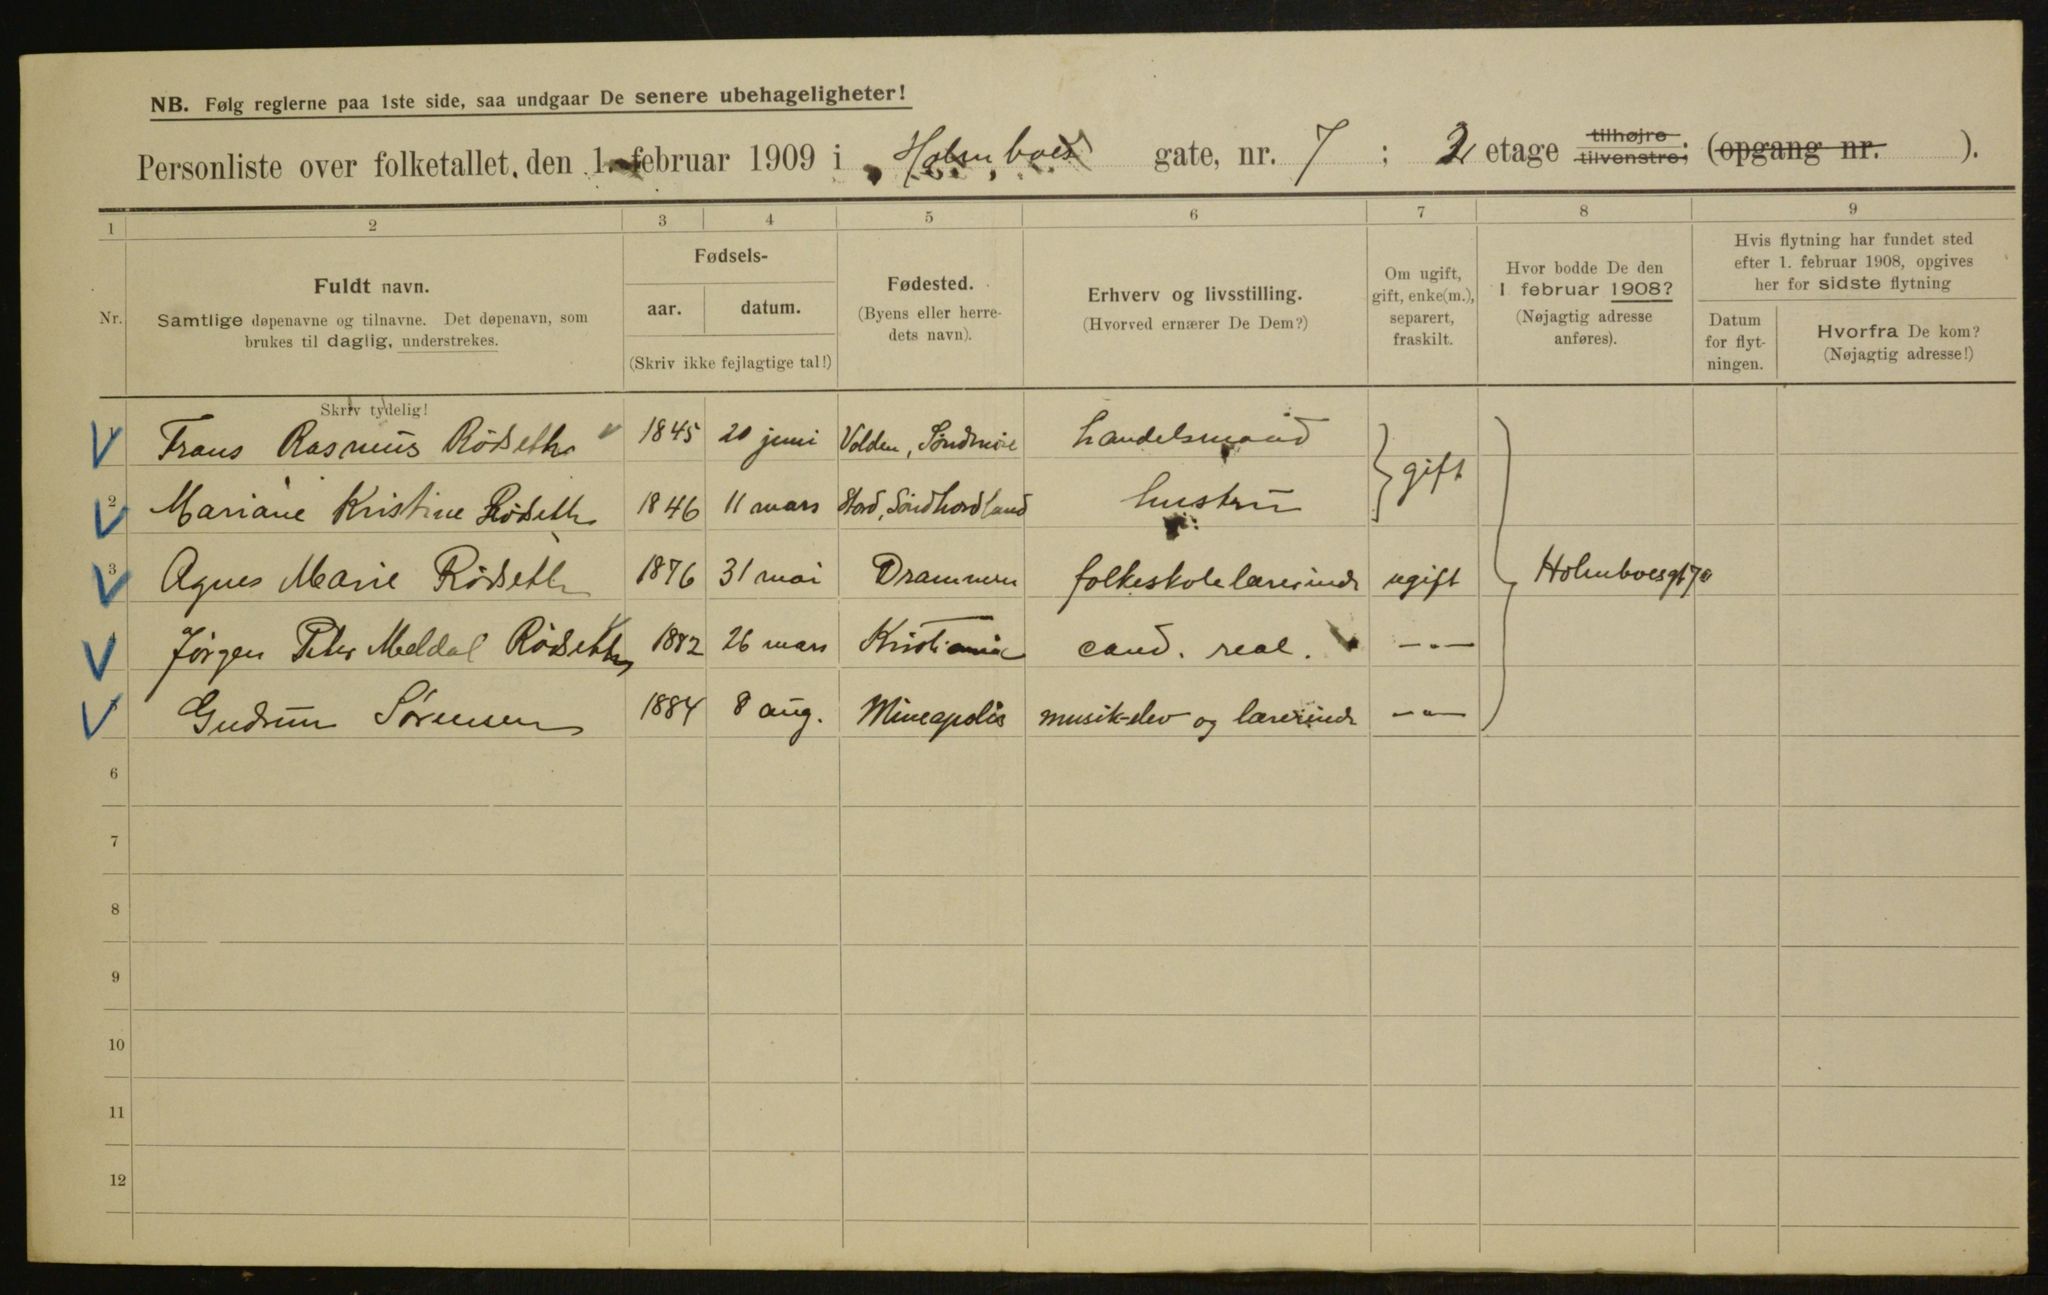 NB. Følg reglerne paa 1ste side, saa undgaar De senere ubehageligheter!
Personliste over folketallet, den 1. februar 1909 i Holmboes gate, nr. 7 ; 2 etage tilhøjre tilvenstre; (opgang nr. ).
1 2 3 4 5 6 7 8 9
Nr.
Fuldt navn.
Samtlige døpenavne og tilnavne. Det døpenavn, som
brukes til daglig, understrekes.
Skriv tydelig!
Fødsels-
aar. datum.
(Skriv ikke fejlagtige tal!)
Fødested.
(Byens eller herre-
dets navn).
Erhverv og livsstilling.
(Hvorved ernærer De Dem?)
Om ugift,
gift, enke(m.),
separert,
fraskilt.
Hvor bodde De den
1 februar 1908?
(Nøjagtig adresse
anføres).
Hvis flytning har fundet sted
efter 1. februar 1908, opgives
her for sidste flytning
Datum
for flyt-
ningen.
Hvorfra De kom?
(Nøjagtig adresse!)
1 Frans Rasmus Rödseth 1845 20 juni Volden, Søndmøre handelsmand } gift
2 Mariane Kristine Rödseth 1846 11 mars Stord, Söndhordland hustru
3 Agnes Marie Rödseth 1876 31 mai Drammen folkeskolelærerinde ugift Holmboesgt 7 II
Jørgen Peter Meldal Rödseth 1882 26 mars Kristiania cand. real. —"—
Gudrun Sørensen 1884 8 aug. Mineapolis musik-elev og lærerinde —"—
6
7
8
9
10
11
12